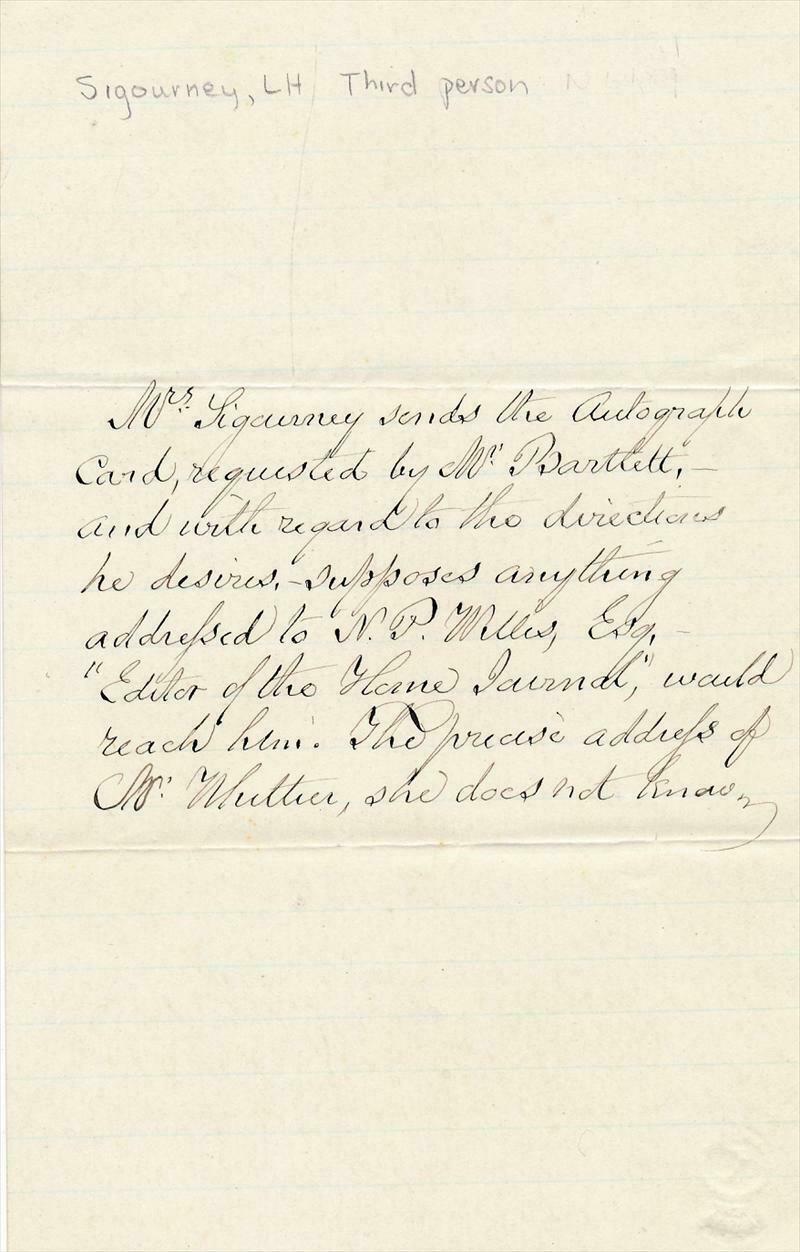 Sigourney, LH Third person
Mrs. Sigourney sends the Autograph
Card, requested by Mr. Bartlett, –
and with regard to the directions
he desires, – supposes anything
addreſsed to N. P. Willis, Esq. –
"Editor of the Home Journal", would
reach him. The precise addreſs of
Mr. Whittier, she does not know.